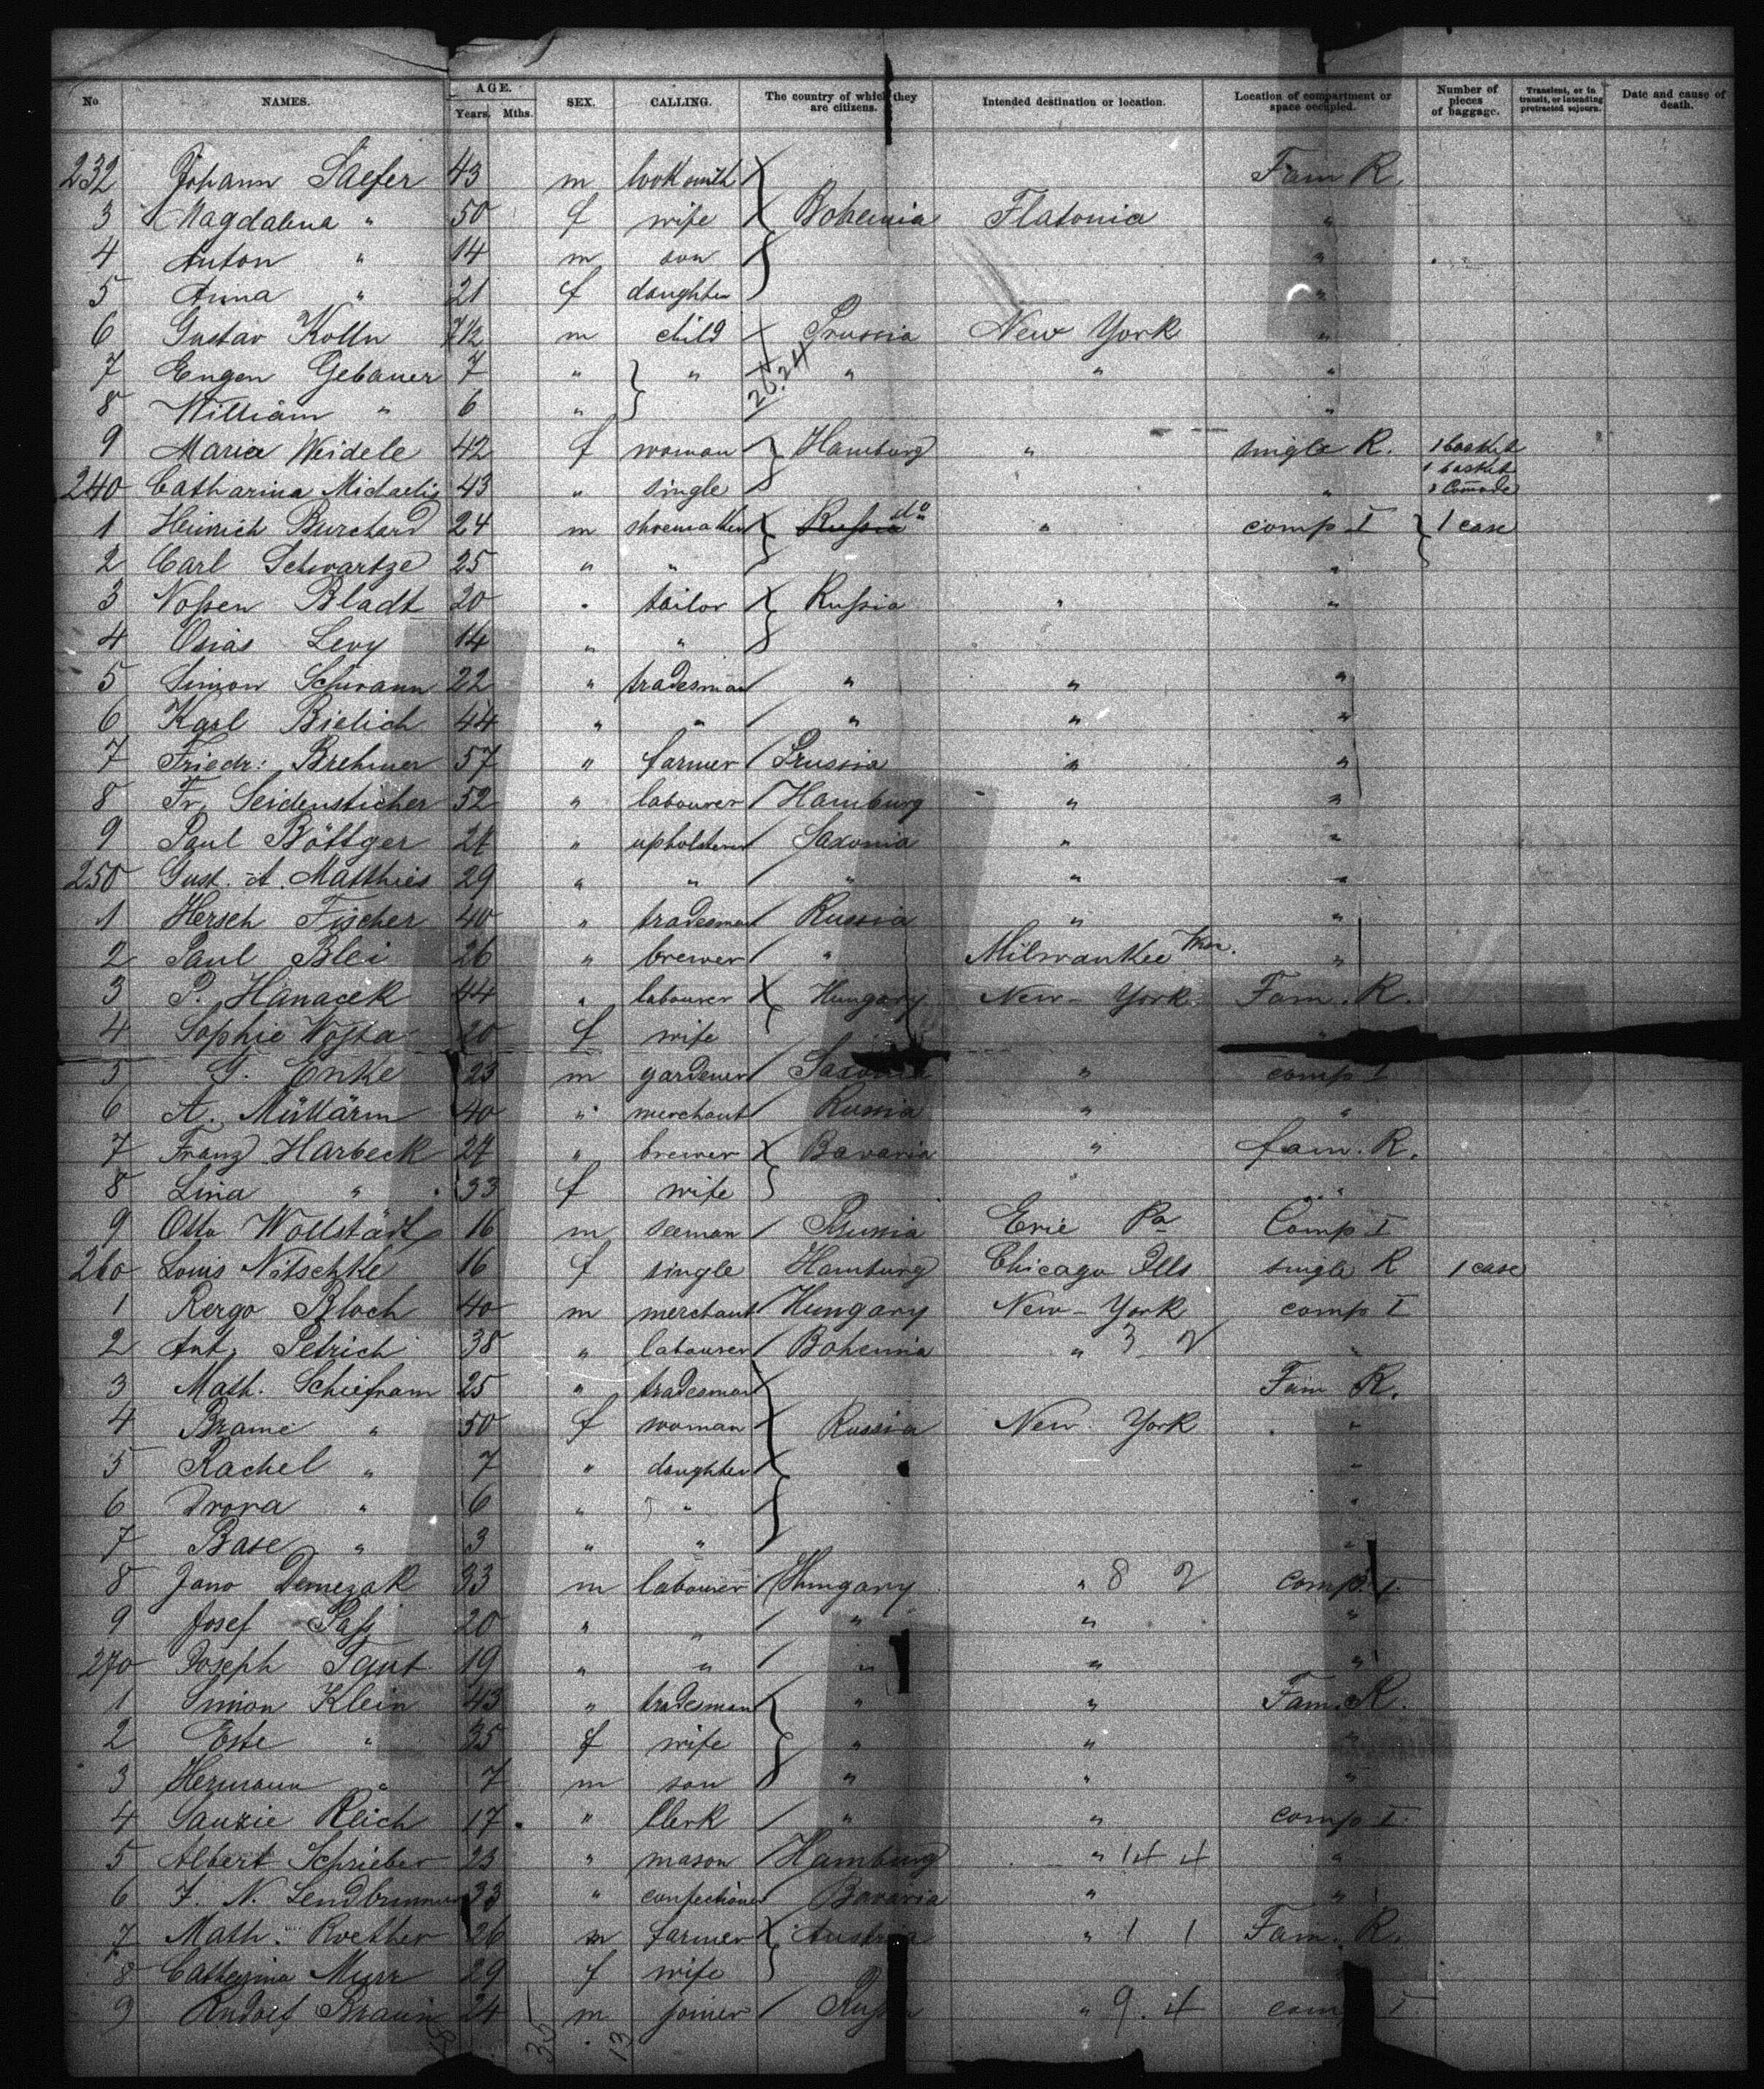 No. NAMES. AGE. Years. Mths. SEX. CALLING. The country of which they are citizens. Intended destination or location. Location of compartment or space occupied. Number of pieces of baggage. Transient, or in transit, or intending protracted sojourn. Date and cause of death.
232 Johann Saefer 43 m looksmith Fam R.
3 Magdalena " 50 f wife Bohemia Flatonia "
4 Anton " 14 m son "
5 Anna " 21 f daughter "
6 Gustav Kolln m child Prussia New York "
7 Eugen Gebauer 7 " " " " "
8 William " 6 " "
9 Maria Weidele 42 f woman Hamburg " single R. 1 basket
240 Catharina Michaelis 43 " single " 1 basket
1 Heinrich Burchard 24 m shoemaker Russia do " comp I 1 case
2 Carl Schwartze 25 " " "
3 Noßen Bladt 20 " tailor Rußia " "
4 Osias Levy 14 " "
5 Simon Schwann 22 " tradesman " " "
6 Karl Bielich 44 " " " " "
7 Friedr: Brehmer 57 " farmer Prussia " "
8 Fr. Seidensticher 52 " labourer Hamburg " "
9 Paul Böttger 24 " upholsterer Saxonia " "
250 Gust. A. Matthies 29 " " " " "
1 Hersch Fischer 40 " tradesman Russia " "
2 Paul Blei 26 " brewer " Milwaukee "
3 P. Hanacek 44 " labourer Hungary New-York Fam. R.
4 Sophie Wojta 20 f wife "
5 G. Enke 23 m gardener Saxonia " comp I
6 A. Müllärm 40 " merchant Russia " "
7 Franz Harbeck 24 " brewer Bavaria " fam. R.
8 Lina " 33 f wife " "
9 Otto Wollstädt 16 m seeman Prussia Erie Pa Comp I
260 Louis Nitschke 16 f single Hamburg Chicago Ills single R 1 case
1 Rergo Bloch 40 m merchant Hungary New-York comp I
2 Ant. Petrich 38 " labourer Bohemia " 3 2 "
3 Math. Schiefram 25 " tradesman Fam R.
4 Brame " 50 f woman Russia New York "
5 Rachel " 7 " daughter "
6 Drora " 6 " " "
7 Base " 3 " " "
8 Jano Demezak 33 m labourer Hungary " 8 2 comp. I.
9 Josef Paß 20 " " " " "
270 Joseph Taut 19 " " " " "
1 Simon Klein 43 " tradesman " " Fam. R.
2 Este " 35 f wife " " "
3 Hermann " 7 m son " " "
4 Reich 17 " Clerk " " comp. I.
5 Albert Schrieber 23 " mason Hamburg " 14 4 "
6 F. N. Lendbrunner 33 " confectioner Bavaria " "
7 Math. Roether 26 m farmer Austria " 1 1 Fam. R.
8 Catherina Murr 29 f wife
9 Rudolf Braun 24 m joiner Rußia " 9. 4 comp I.
35 13